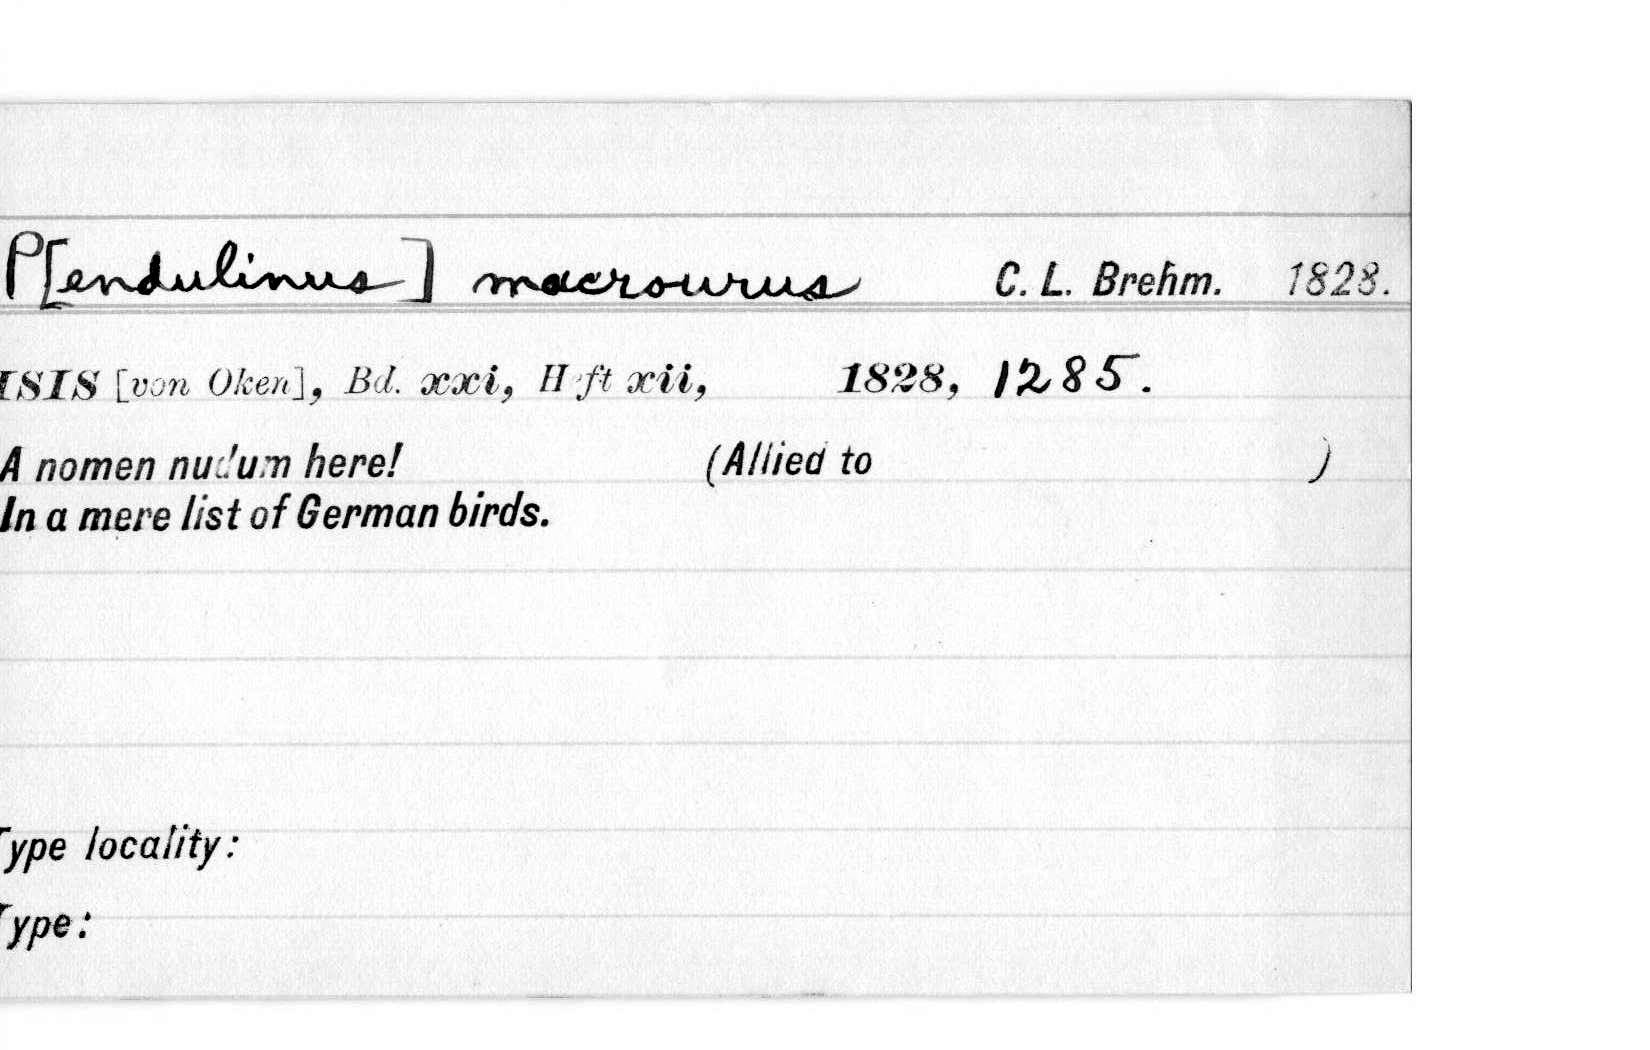 P[endulinus] macrourus C. L. Brehm. 1828.
ISIS [von Oken], Bd. xxi, Heft xii, 1828, 1285.
A nomen nudum here! (Allied to )
In a mere list of German birds.
Type locality:
Type: